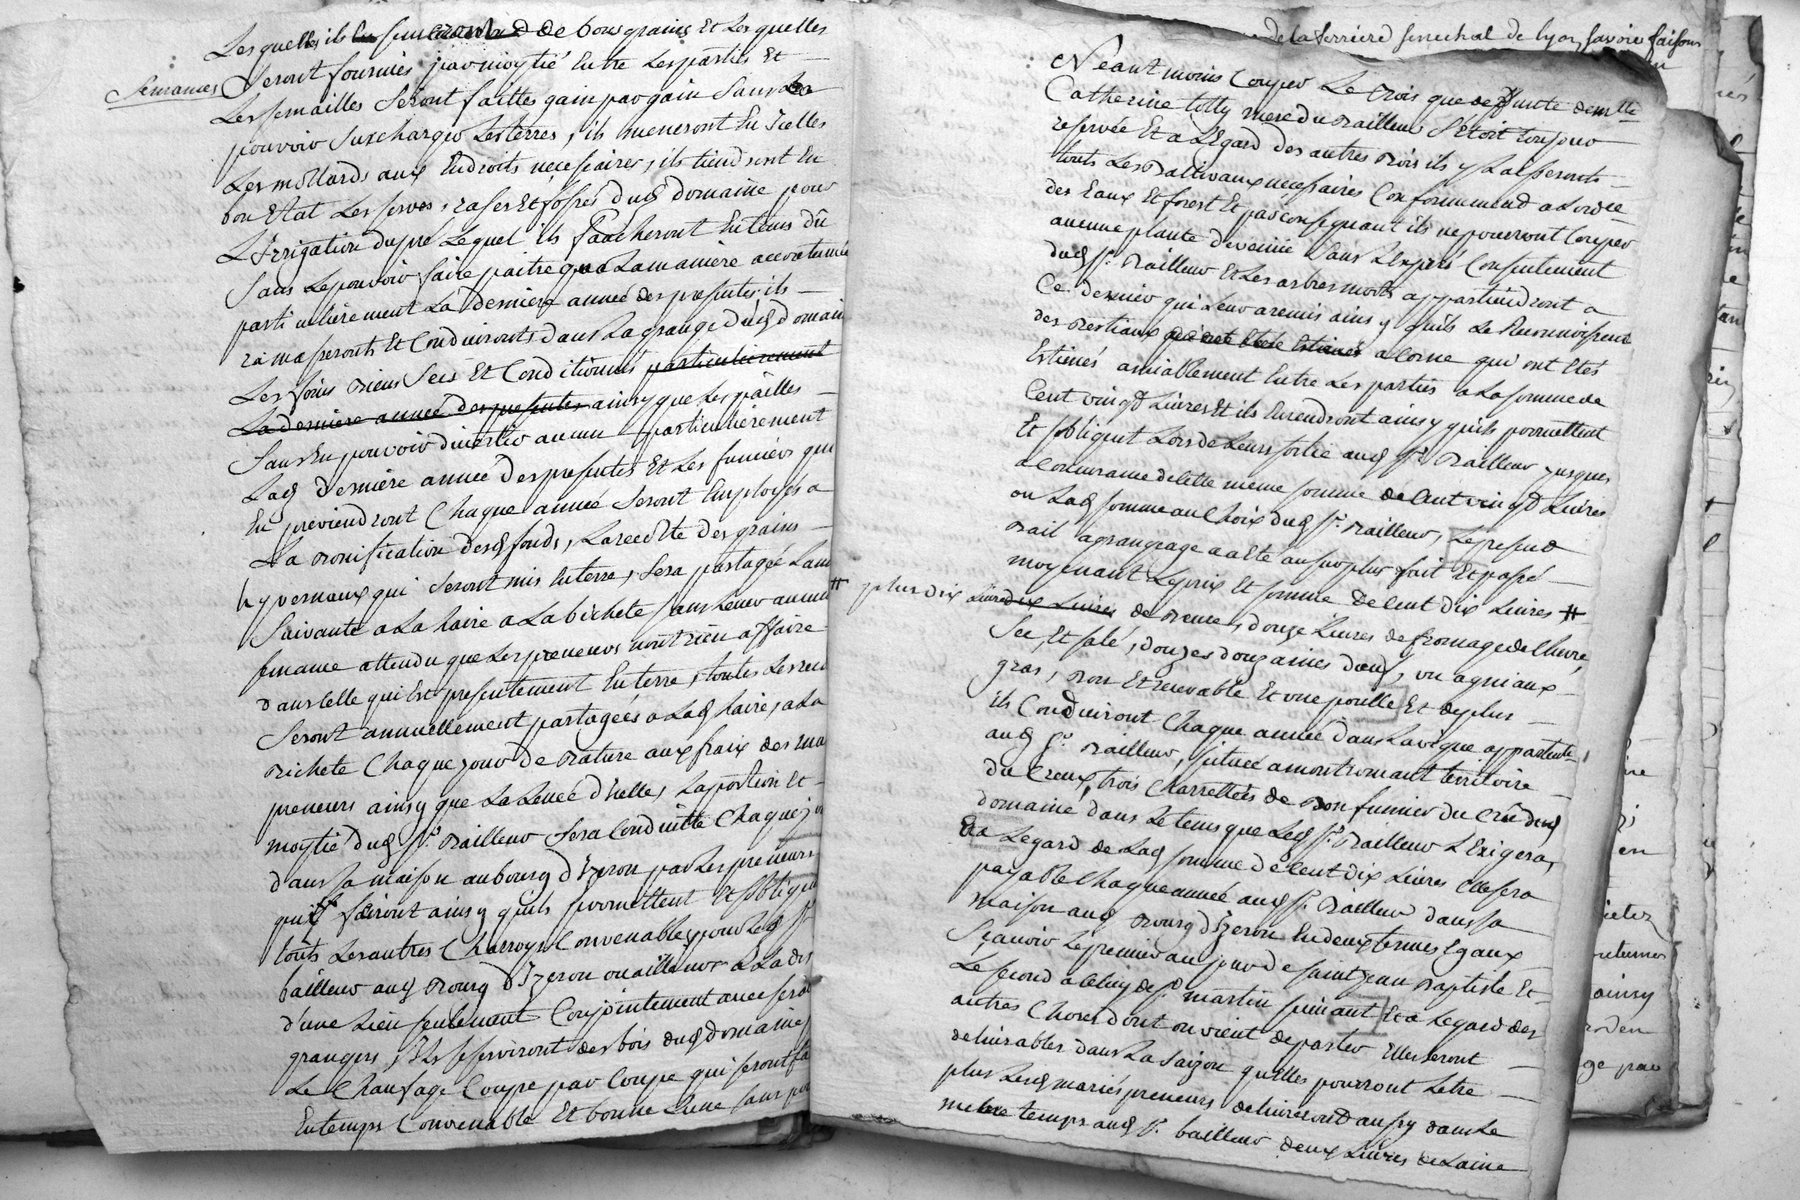 Lesquelles ils de bons grains Et Lesquelles
Semances
Seront fournies par moytié Entre Les partis Et
Les semailles Seront faittes gain par gain Sans
pouvoir Surcharger Les terres, ils meneront En Icelles
Les mollards aux Endroits necessaires, ils tiendront En
bon Etat Les serves, rases Et fossés dud domaine pour
L'Irrigation du pré Lequel ils faucheront En tems dû
Sans Le pouvoir faire paitre qu'a La maniere accoutumée
particulierement La derniere année des presentes, ils
ramasseront Et Conduiront dans La grange dud domaine
Les foins biens Secs Et Conditionnés particulierement
La derniere année des presentes ainsy que Les pailles
Sans En pouvoir divertir aucun particulierement
Lad derniere année des presentes Et Les fumiers qui
En proviendront Chaque année Seront Employés a
La bonification desd fonds, La recolte des grains
hyvernaux qui Seront mis En terre, Sera partagée L'année
Suivante a La haire a La bichete sans Lever aucune
semance attendu que Les preneurs n'ont rien affaire
dans celle qui Est presentement En terre, toutes Les
Seront annuellement partagées a Lad haire, a La
bichete Chaque jour de bature aux fraix des
preneurs ainsy que La Levée d'icelles, La portion Et
moytié dud Sr. bailleur Sera Conduitte Chaque
dans sa maison au bourg d'Izeron par Les preneurs
qui fairont ainsy qu'ils promettent Et s'obligent
touts Les autres Charroys Convenables pour Led Sr.
bailleur aud bourg d'Izeron ou ailleurs a La
d'une Lieu seulement Conjointement avec ses
grangers, Ils se serviront des bois dud domaine
Le Chaufage Coupe par Coupe qui seront
En temps Convenable Et bonne Lune sans
de la ferriere senechal de Lyon, savoir faisons
Neantmoins Couper Le bois que defunte demlle
Catherine tilly mere du bailleur S'étoit toujours
reservée Et a L'Egard des autres bois ils y Laisseront
touts Les balliveaux necessaires Conformement a Lord.ce
des Eaux Et forest Et par consequant ils ne pourront Couper
aucune plante de veine Sans L'Exprés Consentement
dud Sr. bailleur Et Les arbres morts appartiendront a
Ce dernier qui Leur a remis ainsy qu'ils Le Reconnoissent
des bestiaux a Corne qui ont Etés
Estimés amiablement Entre Les parties a La somme de
Cent vingt Livres Et ils En rendront ainsy qu'ils promettent
Et s'obligent Lors de Leur sortie aud Sr. bailleur jusques
a Concurrance de Cette meme somme de Cent vingt Livres
ou Lad somme au Choix dud Sr. bailleur, Le present
bail a grangeage a Eté au surplus fait Et passé
moyenant Le prix Et somme de Cent dix Livres #
# plus dix Livres dix Livres de beure, douze Livres de fromage de Chevre
Sec, Et salé, douzes douzaines d'œufs, un agniaux
gras, bon Et recevable Et une poulle Et de plus
ils Conduiront Chaque année dans La vigne appartente
aud Sr. bailleur, scituée a montromant territoire
du Creux, trois Charrettées de bon fumier du Crû dud
domaine dans Le tems que Led Sr. bailleur L'Exigera,
Et a L'egard de Lad somme de Cent dix Livres Elle sera
payable Chaque année aud Sr. bailleur dans sa
maison aud bourg d'Izeron En deux termes Egaux
Sçavoir Le premier au jour de saint jean Baptiste Et
Le second a Celuy de St. martin suivant Et a L'egard des
autres Choses dont on vient de parler Elles seront
delivrables dans La Saizon qu'elles pourront L'etre
plus Lesd mariés preneurs delivreront aussy dans Le
meme temps aud Sr. bailleur deux Livres de Laine